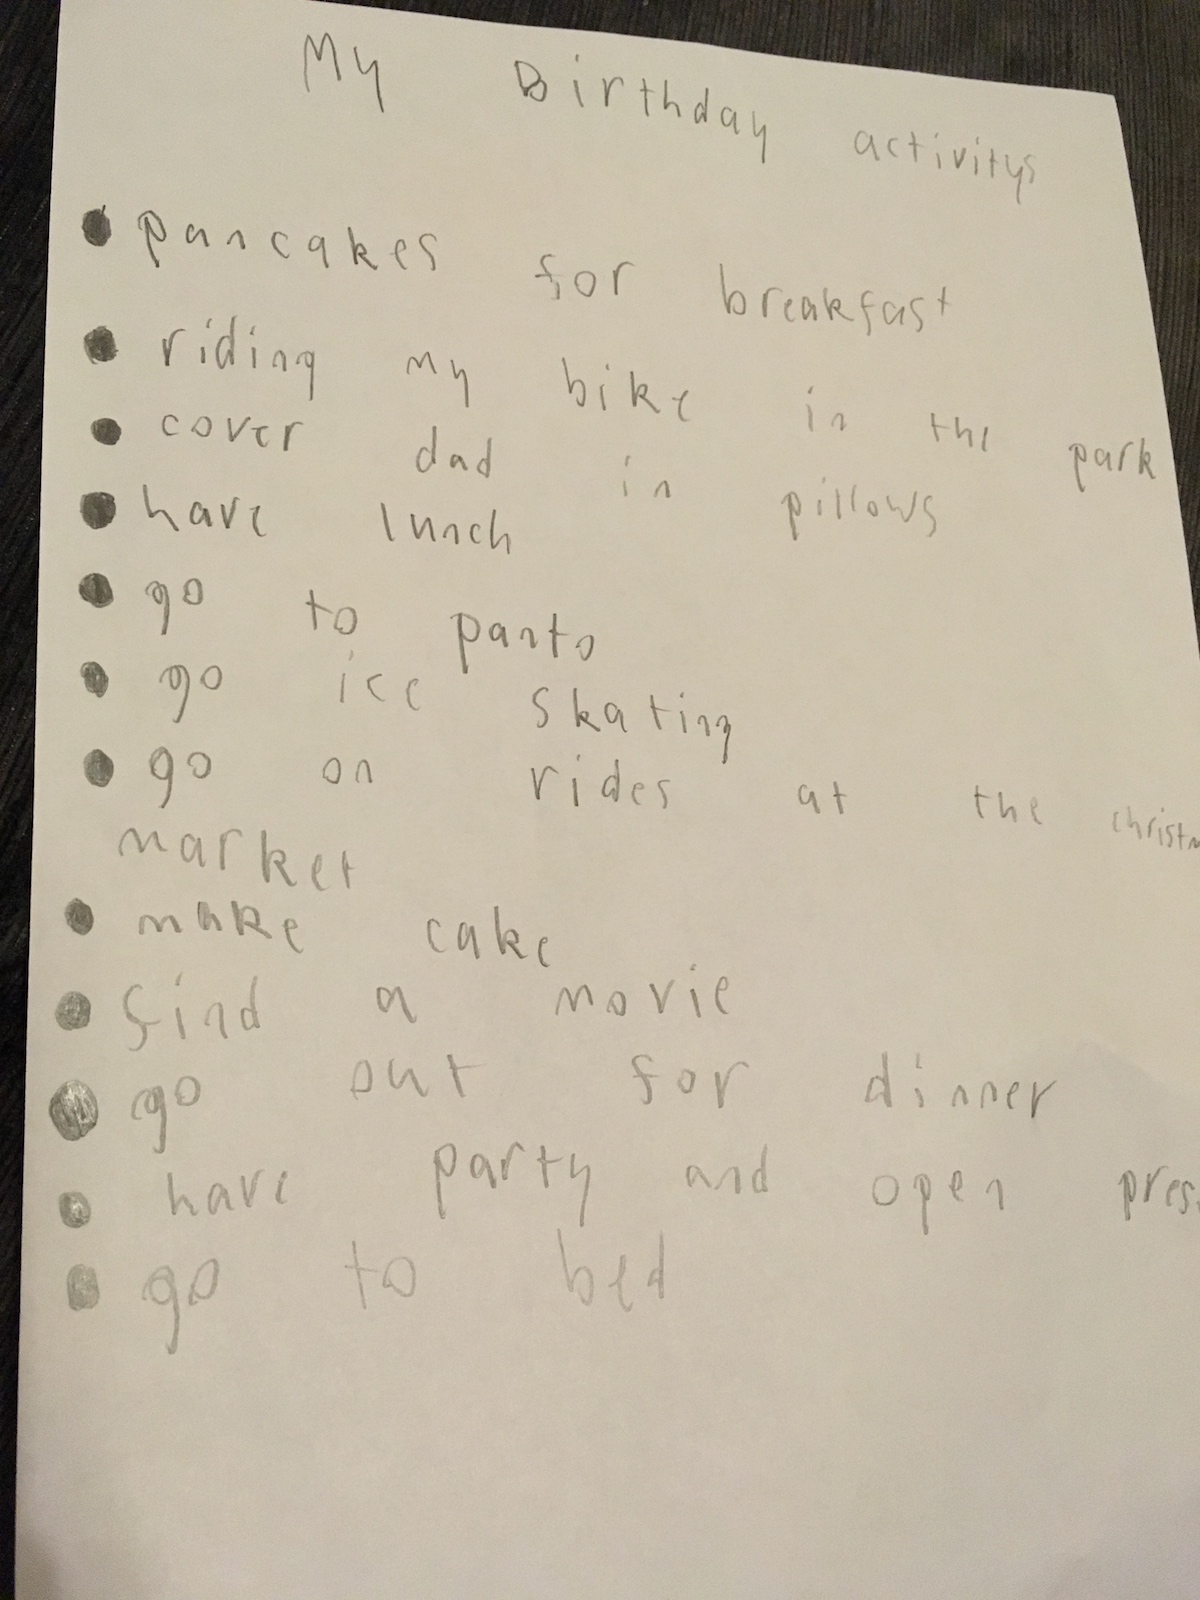 My Birthday activitys
• pancakes for breakfast
• riding my bike in the park
• cover dad in pillows
• have lunch
• go to panto
• go ice skating
• go on rides at the christm
market
• make cake
• find a movie
• go out for dinner
• have party and open pres
• go to bed